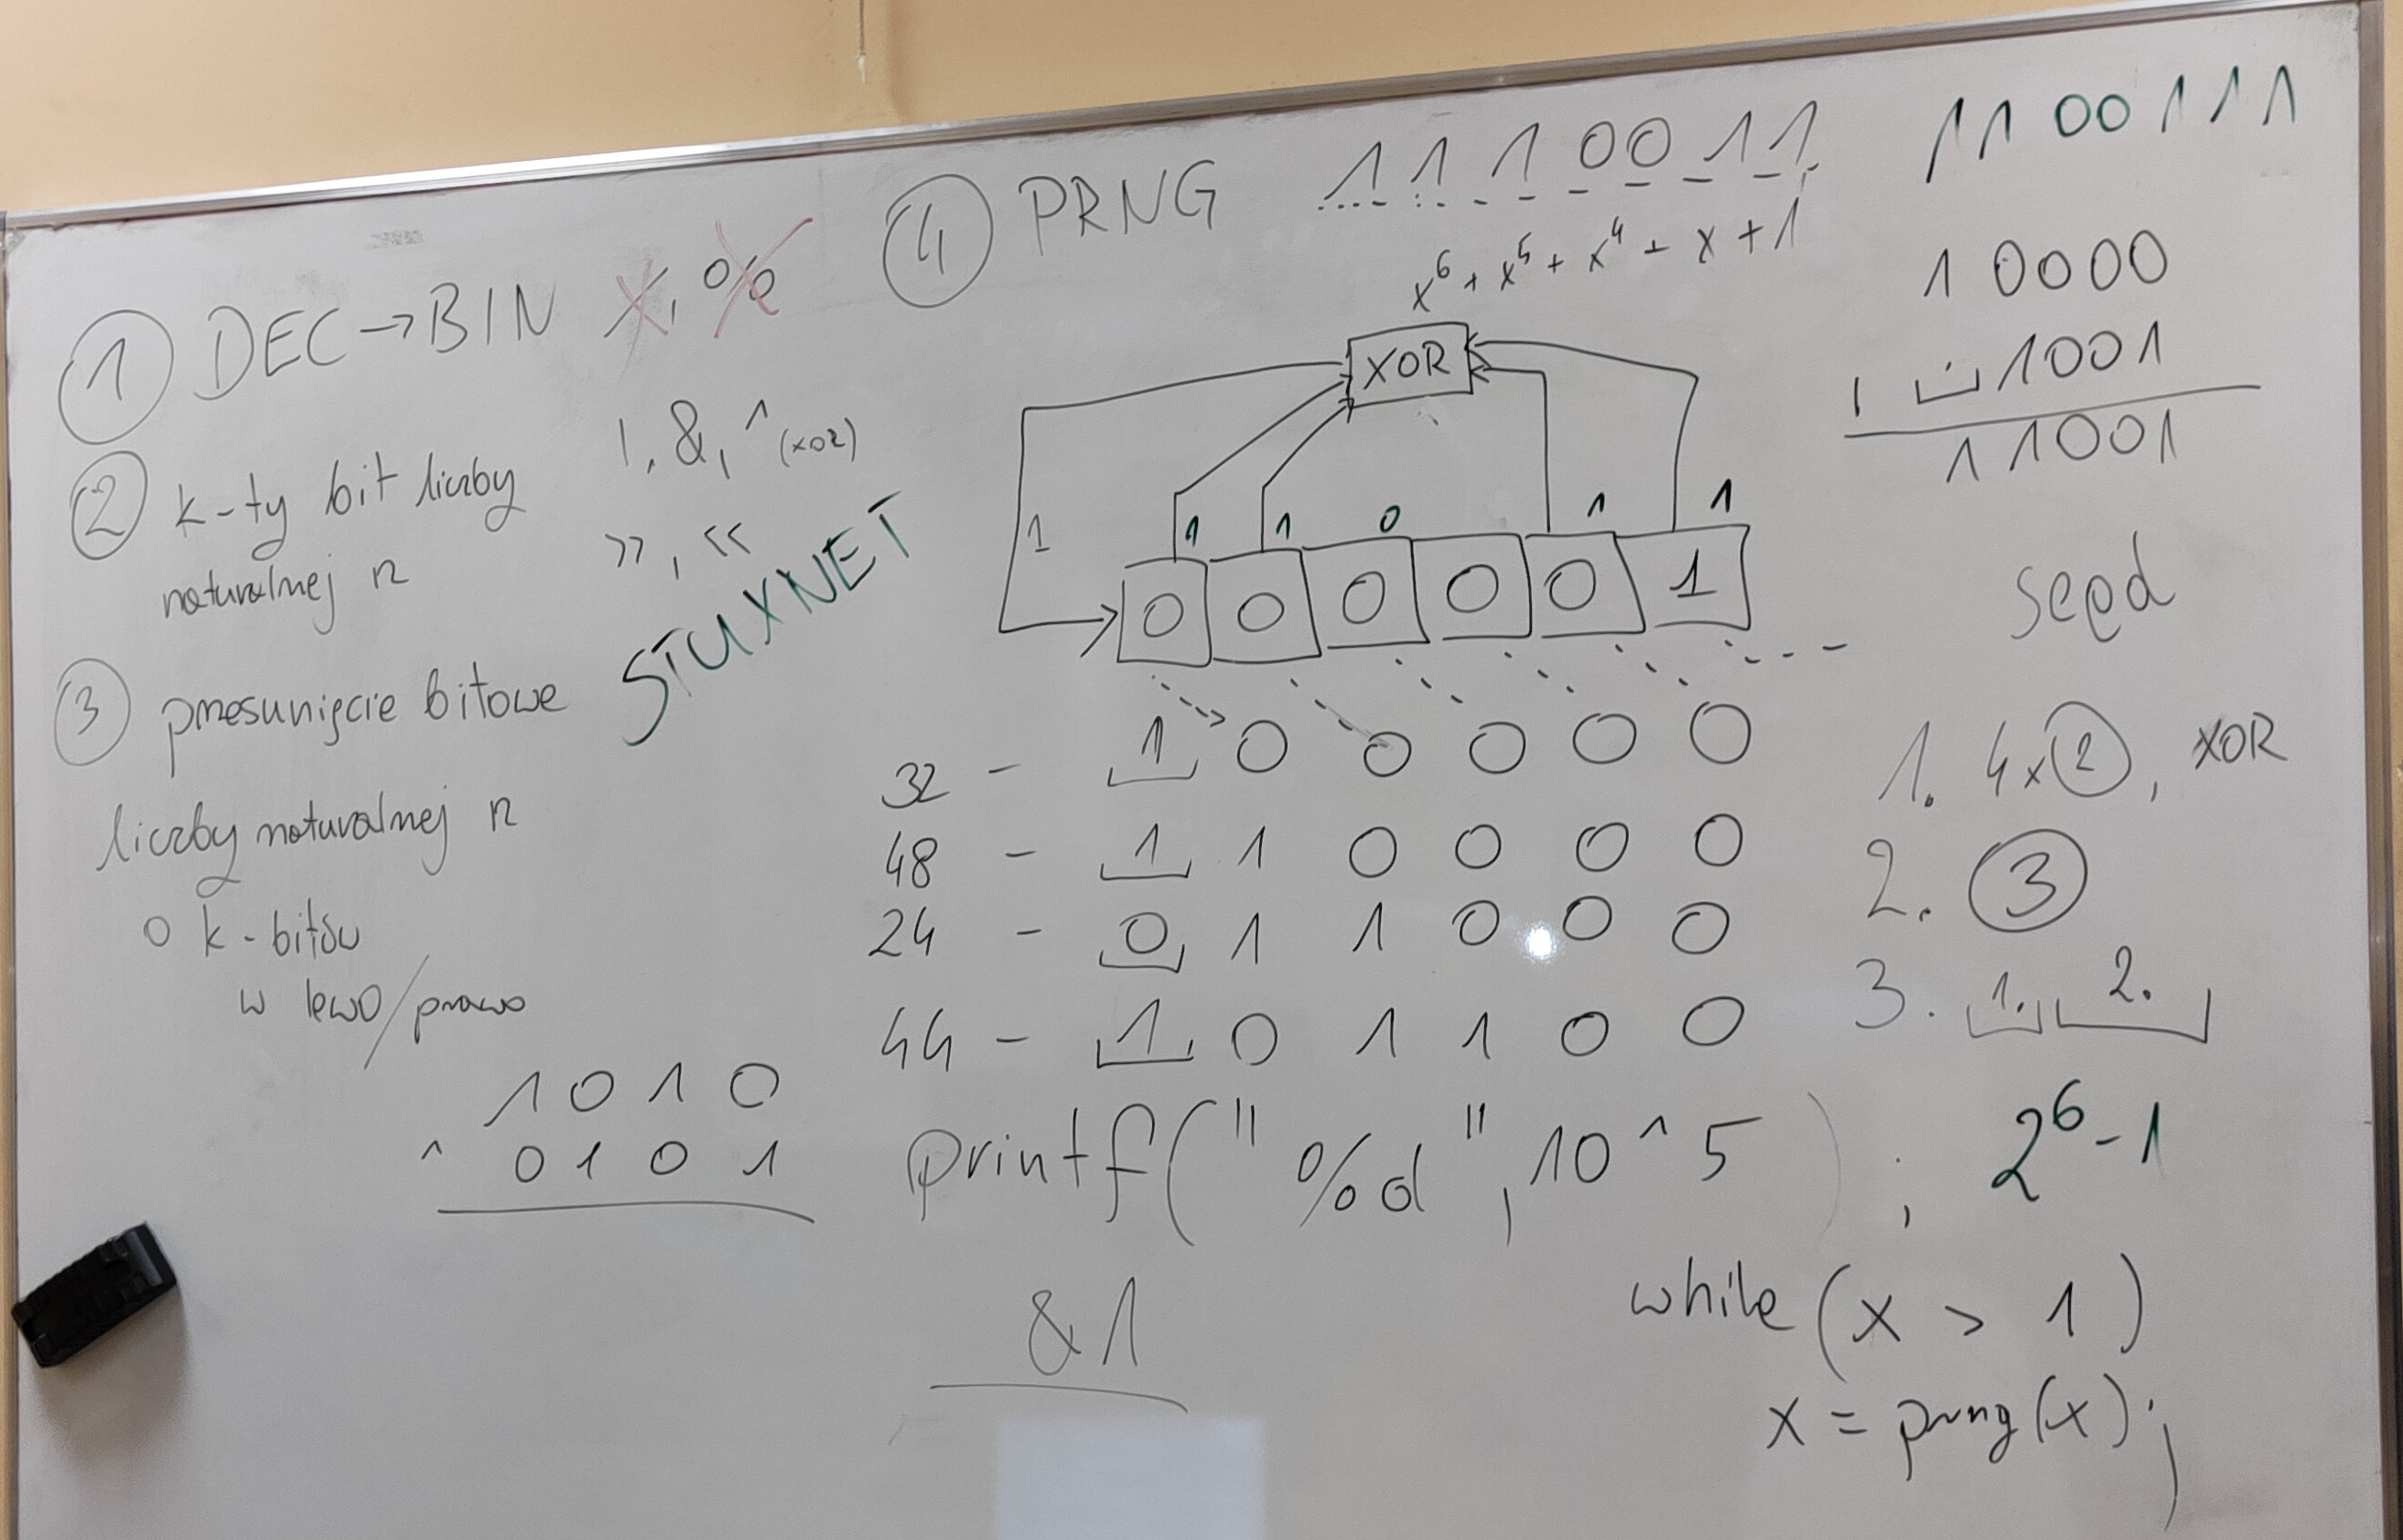 ① DEC → BIN /, %
② k-ty bit liczby
naturalnej n
|, &, ^ (XOR)
>>, <<
STUXNET
③ przesunięcie bitowe
liczby naturalnej n
o k-bitów
w lewo/prawo
1 0 1 0
^ 0 1 0 1
④ PRNG
1 1 1 0 0 1 1
x⁶ + x⁵ + x⁴ + x + 1
XOR
1
1 1 0 1 1
0 0 0 0 0 1
32 - 1 0 0 0 0 0
48 - 1 1 0 0 0 0
24 - 0 1 1 0 0 0
44 - 1 0 1 1 0 0
printf("%d", 10^5);
&1
1 1 0 0 1 1 1
1 0 0 0 0
| 1 0 0 1
1 1 0 0 1
seed
1. 4x②, XOR
2. ③
3. 1. 2.
2⁶-1
while (x > 1)
x = prng(x);